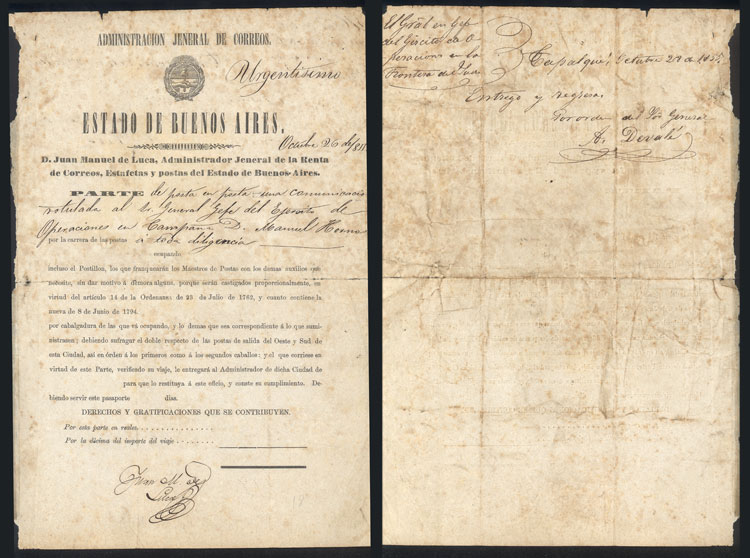 ADMINISTRACION JENERAL DE CORREOS.
Urgentísimo
ESTADO DE BUENOS AIRES.
Octubre 26 de
D. Juan Manuel de Luca, Administrador Jeneral de la Renta
de Correos, Estafetas y postas del Estado de Buenos-Aires.
PARTE de posta en posta una comunicacion
rotulada al Sr. General Gefe del Ejercito de
Operaciones en Campaña D. Manuel
por la carrera de las postas á toda diligencia
ocupando
incluso el Postillon, los que franquearán los Maestros de Postas con los demas auxilios que
necesite, sin dar motivo á demora alguna, porque serán castigados proporcionalmente, en
virtud del artículo 14 de la Ordenanza de 23 de Julio de 1762, y cuanto contiene la
nueva de 8 de Junio de 1794.
por cabalgadura de las que vá ocupando, y lo demas que sea correspondiente á lo que sumi-
nistrasen; debiendo sufragar el doble respecto de las postas de salida del Oeste y Sud de
esta Ciudad, así en órden á los primeros como á los segundos caballos; y el que corriese en
virtud de este Parte, verificado su viaje, le entregará al Administrador de dicha Ciudad de
para que lo restituya á este oficio, y conste su cumplimiento. De-
biendo servir este pasaporte dias.
DERECHOS Y GRATIFICACIONES QUE SE CONTRIBUYEN.
Por esta parte en reales
Por la décima del importe del viaje
Juan M. de
Luca
El Gral en Gefe
del Ejército de O-
peraciones en la
Frontera del Sur
Tapalqué, Octubre 28 de 1855.
Entregó y regresa
Por orden del Sor General
A. Dovalé